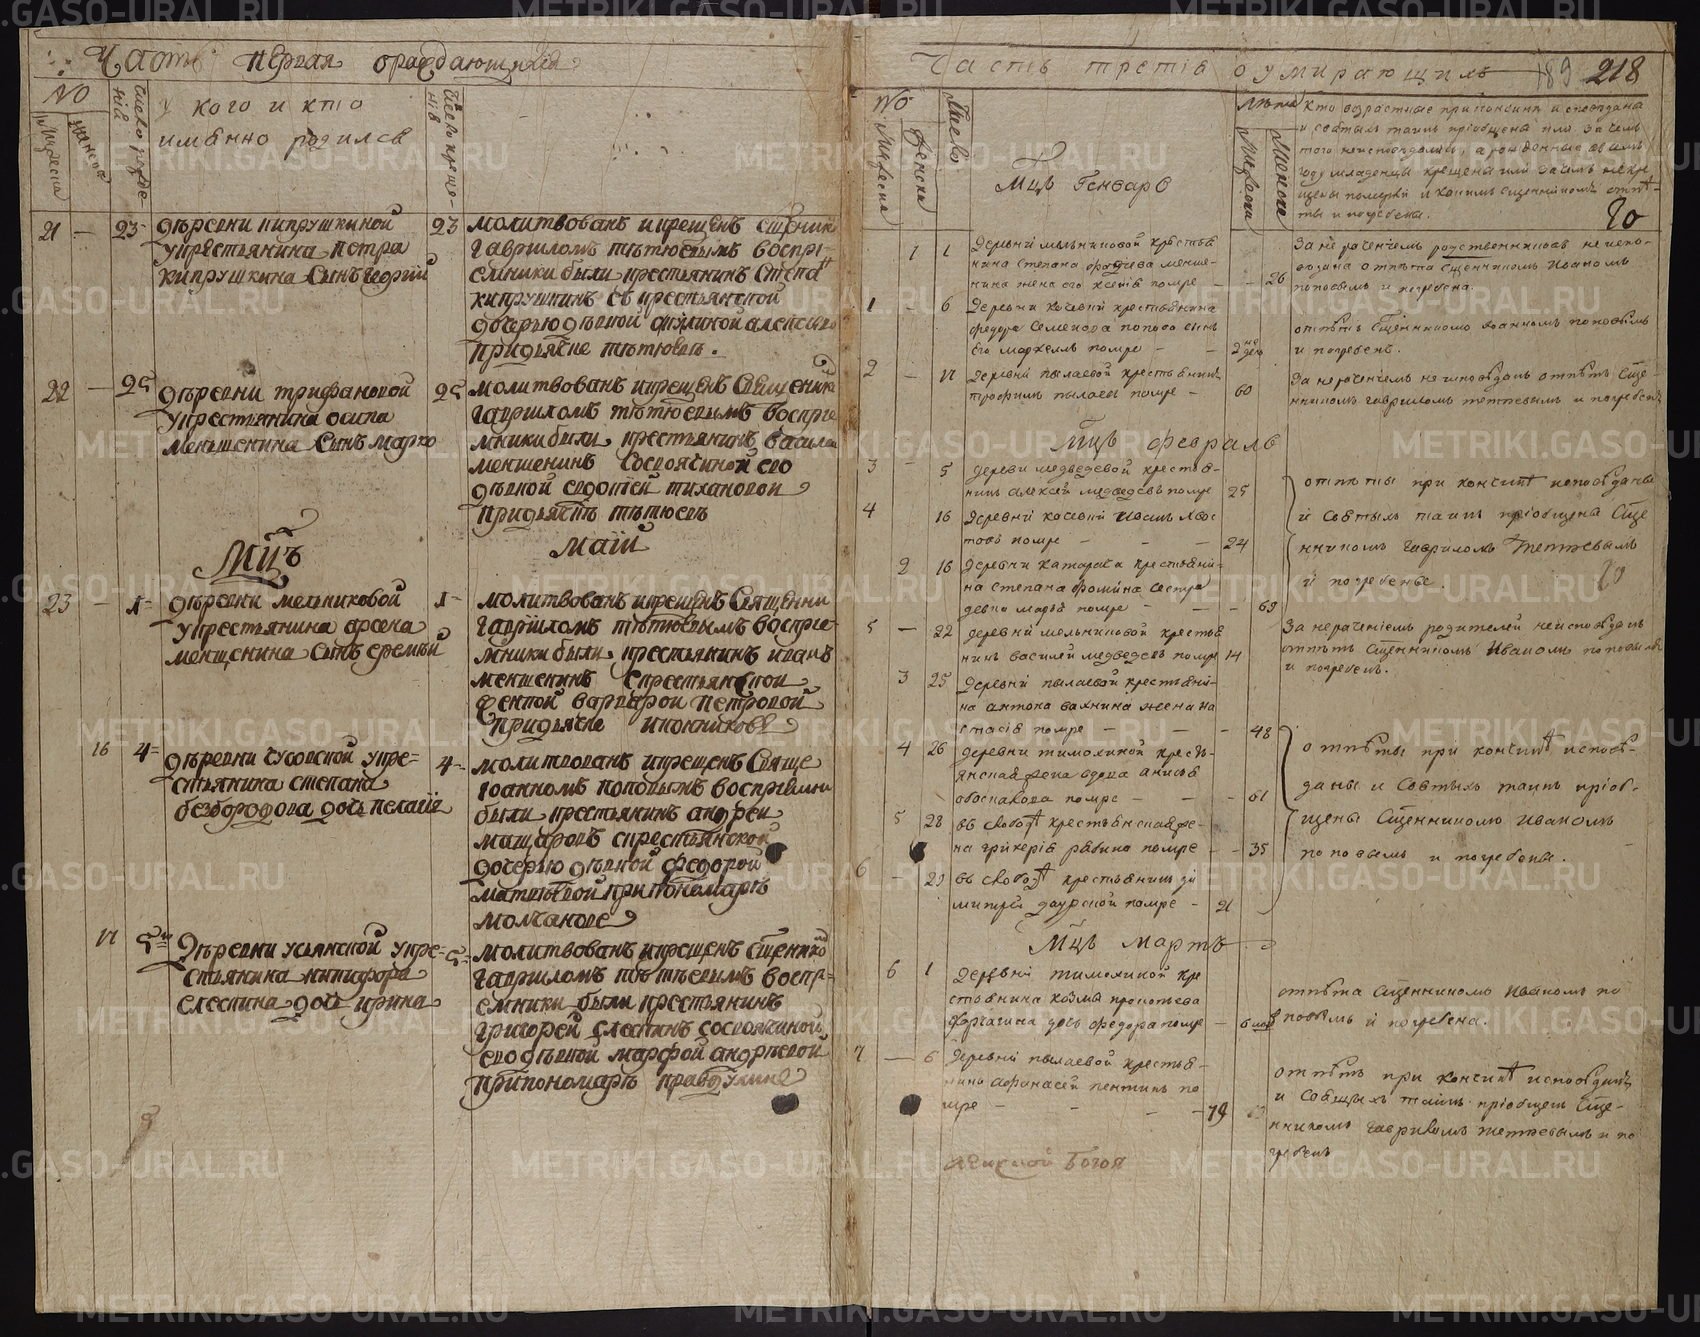 Часть первая ораждающихся
№
Мужеска
Женска
Число рожде-
нія
У кого и кто
имянно родился
Число креще-
нія
21 — 23 дѣревни кипрушкиной
у крестьянина петра
кипрушкина сынъ георгий
23 молитвованъ и крещенъ сщенник
гавриломъ тѣтюевымъ воспрі-
емники были крестьянинъ степан
кипрушкинъ съ крестьянской
дочерью дѣвкой
при дьячке тѣтюеве.
22 — 25 дѣревни трифановой
у крестьянина осипа
меньшенина сынъ марко
25 молитвованъ и крещенъ священник
гавриломъ тѣтюевымъ воспрі
мники были крестьянинъ василей
меншенинъ со свояченой ево
дѣвкой евдокией тихановой
при дьячкѣ тѣтюевѣ
Мцъ май
23 — 1 дѣревни мелниковой
у крестьянина арсена
менщенина сынъ еремѣй
1 молитвованъ и крещенъ священни
гавриломъ тѣтюевымъ воспріе
мники были крестьянинъ иванъ
меншенинъ с крестьянской
женкой варварой петровой
при дьячке иконникове
16 4 дѣревни чусовской у кре=
стьянина степана
безбородова дочь пелагія
4 молитвованъ и крещенъ свяще
іоанномъ поповымъ воспріемни
были крестьянинъ андрей
машаровъ с крестьянской
дочерью дѣвкой федорой
матвѣевой при пономарѣ
молчанове
17 5 дѣревни усьянской у кре=
стьянина никифора
слестина дочь ирина
5 молитвованъ и крещенъ сщенико
гавриломъ тѣтюевымъ воспр-
емники были крестьянинъ
григорей слестинъ со свояченой
ево дѣвкой марфой андрѣевой
при пономарѣ правдухине
Часть третія о умирающихъ 189 218
№
Мужеска
Женска
Число
Мцъ Генварь
Лѣта
Мужеска
Женска
Кто возрастные при кончинѣ исповѣдана
и святыхъ таинъ пріобщена или за чемъ
того неисповѣдали, а рожденные въ томъ
году младенцы крещены или зачемъ некре
щены померли и какимъ сщенникомъ отпѣ-
ты и погребены. 20
1 1 Деревни мельниковой крестья
нина степана меньше-
нина жена его ксенія помре — 26
За нераченіемъ родственниковъ неиспо-
ведана отпѣта сщенникомъ Иваномъ
поповымъ и погребена.
1 — 6 Деревни косевни крестьянина
федора Семенова попова сынъ
его маркеллъ помре — — 2 не
дел
отпѣтъ Сщенникомъ іоанномъ поповымъ
и погребенъ.
2 — 17 Деревни пылаевой крестьянинъ
трофимъ пылаевъ помре — 60
За нераченіемъ не исповѣданъ отпѣтъ Сще-
нникомъ гавриломъ тетюевымъ и погребенъ
Мцъ февраль
3 — 5 деревни медведевой крестья-
нинъ алексѣй медведевъ помре 25
отпѣты при кончинѣ исповѣданы
и святыхъ таинъ пріобщена Сще
4 16 Деревни косевни Иванъ
помре — — — 24
нникомъ гавриломъ тетюевымъ
и погребены.
2 16 Деревни катарача крестьяни-
на степана фомина сестра
девка марья помре — — 69
5 — 22 деревни мельниковой крестья
нинъ василей медведевъ помре 14
За нераченіемъ родителей неисповѣданъ
отпѣтъ Сщенникомъ Иваномъ поповымъ
и погребенъ.
3 25 Деревни пылаевой крестьяни-
на антона вахнина жена на
стасія помре — — 48
отпѣты при кончинѣ исповѣ-
даны и Святыхъ таинъ пріоб-
щены Сщенникомъ Иваномъ
поповымъ и погребены.
4 26 деревни тимохиной кресть-
янская жена вдова анисья
помре — — — 61
5 28 въ слободѣ крестьянская же-
на гликерія рябина помре — — 35
6 — 29 въ слободѣ крестьянинъ ди
митрей даурской помре — 21
Мцъ Мартъ
6 1 Деревни тимохиной кре
стьянина козмы прокопьева
дочь федора помре — 6 нед
отпѣта Сщенникомъ Иваномъ по
повымъ и погребена.
7 — 6 Деревни пылаевой крестья-
нинъ афанасей пентинъ по
мре — — — — 79
отпѣтъ при кончинѣ исповѣданъ
и Святыхъ таинъ пріобщенъ Сще-
нникомъ гавриломъ тетюевымъ и по
гребенъ